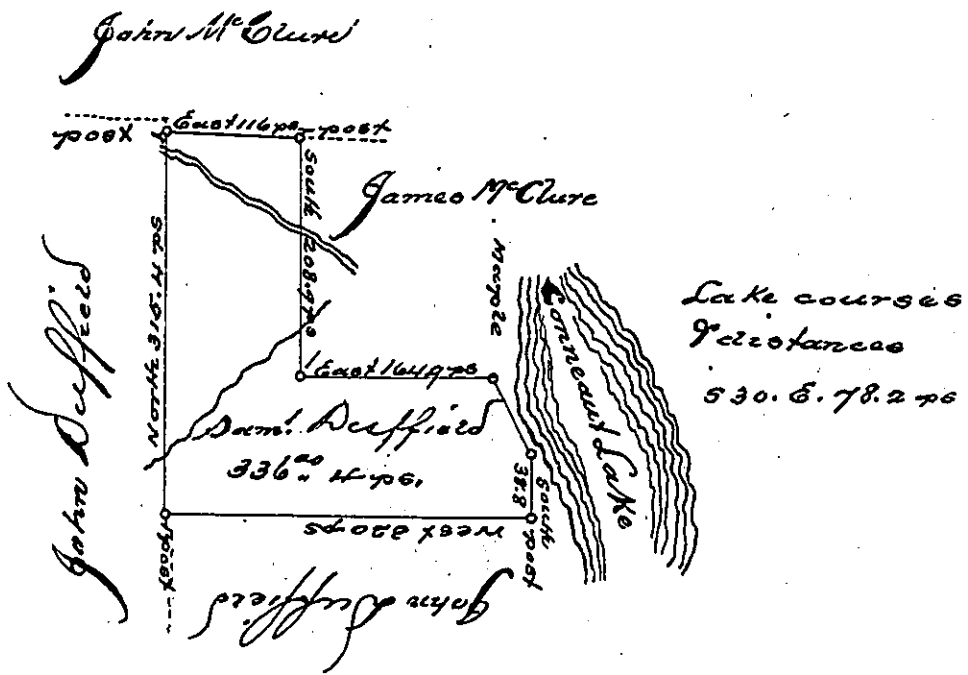 John McClure
post
East 116 ps
post
South 208.9 ps
James McClure
Maple
North 315.4 ps
John Duffield
East 164.9 ps
Conneaut Lake
Lake courses
& distances
S 30. E. 78.2 ps
Saml. Duffield
336 as " 4 ps.
South
38.8
post
West 320 ps
post
John Duffield